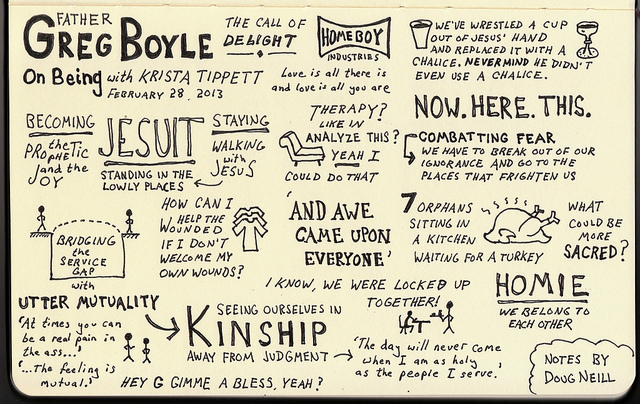 FATHER
GREG BOYLE
On Being with KRISTA TIPPETT
FEBRUARY 28, 2013
THE CALL OF
DELIGHT
HOMEBOY
INDUSTRIES
Love is all there is
and love is all you are
WE'VE WRESTLED A CUP
OUT OF JESUS' HAND
AND REPLACED IT WITH A
CHALICE. NEVERMIND HE DIDN'T
EVEN USE A CHALICE.
BECOMING
JESUIT
STAYING
the
PROPHETIC
and the
JOY
WALKING
with
JESUS
STANDING IN THE
LOWLY PLACES
THERAPY?
LIKE IN
ANALYZE THIS?
YEAH I
COULD DO THAT
NOW. HERE. THIS.
COMBATTING FEAR
WE HAVE TO BREAK OUT OF OUR
IGNORANCE AND GO TO THE
PLACES THAT FRIGHTEN US
BRIDGING
the
SERVICE
GAP
with
UTTER MUTUALITY
HOW CAN I
HELP THE
WOUNDED
IF I DON'T
WELCOME MY
OWN WOUNDS?
'AND AWE
CAME UPON
EVERYONE'
7 ORPHANS
SITTING IN
A KITCHEN
WAITING FOR A TURKEY
WHAT
COULD BE
MORE
SACRED?
I KNOW, WE WERE LOCKED UP
TOGETHER!
HOMIE
WE BELONG TO
EACH OTHER
'At times you can
be a real pain in
the ass...'
'...The feeling is
mutual.'
SEEING OURSELVES IN
KINSHIP
AWAY FROM JUDGMENT
'The day will never come
when I am as holy
as the people I serve.'
HEY G GIMME A BLESS, YEAH?
NOTES BY
DOUG NEILL